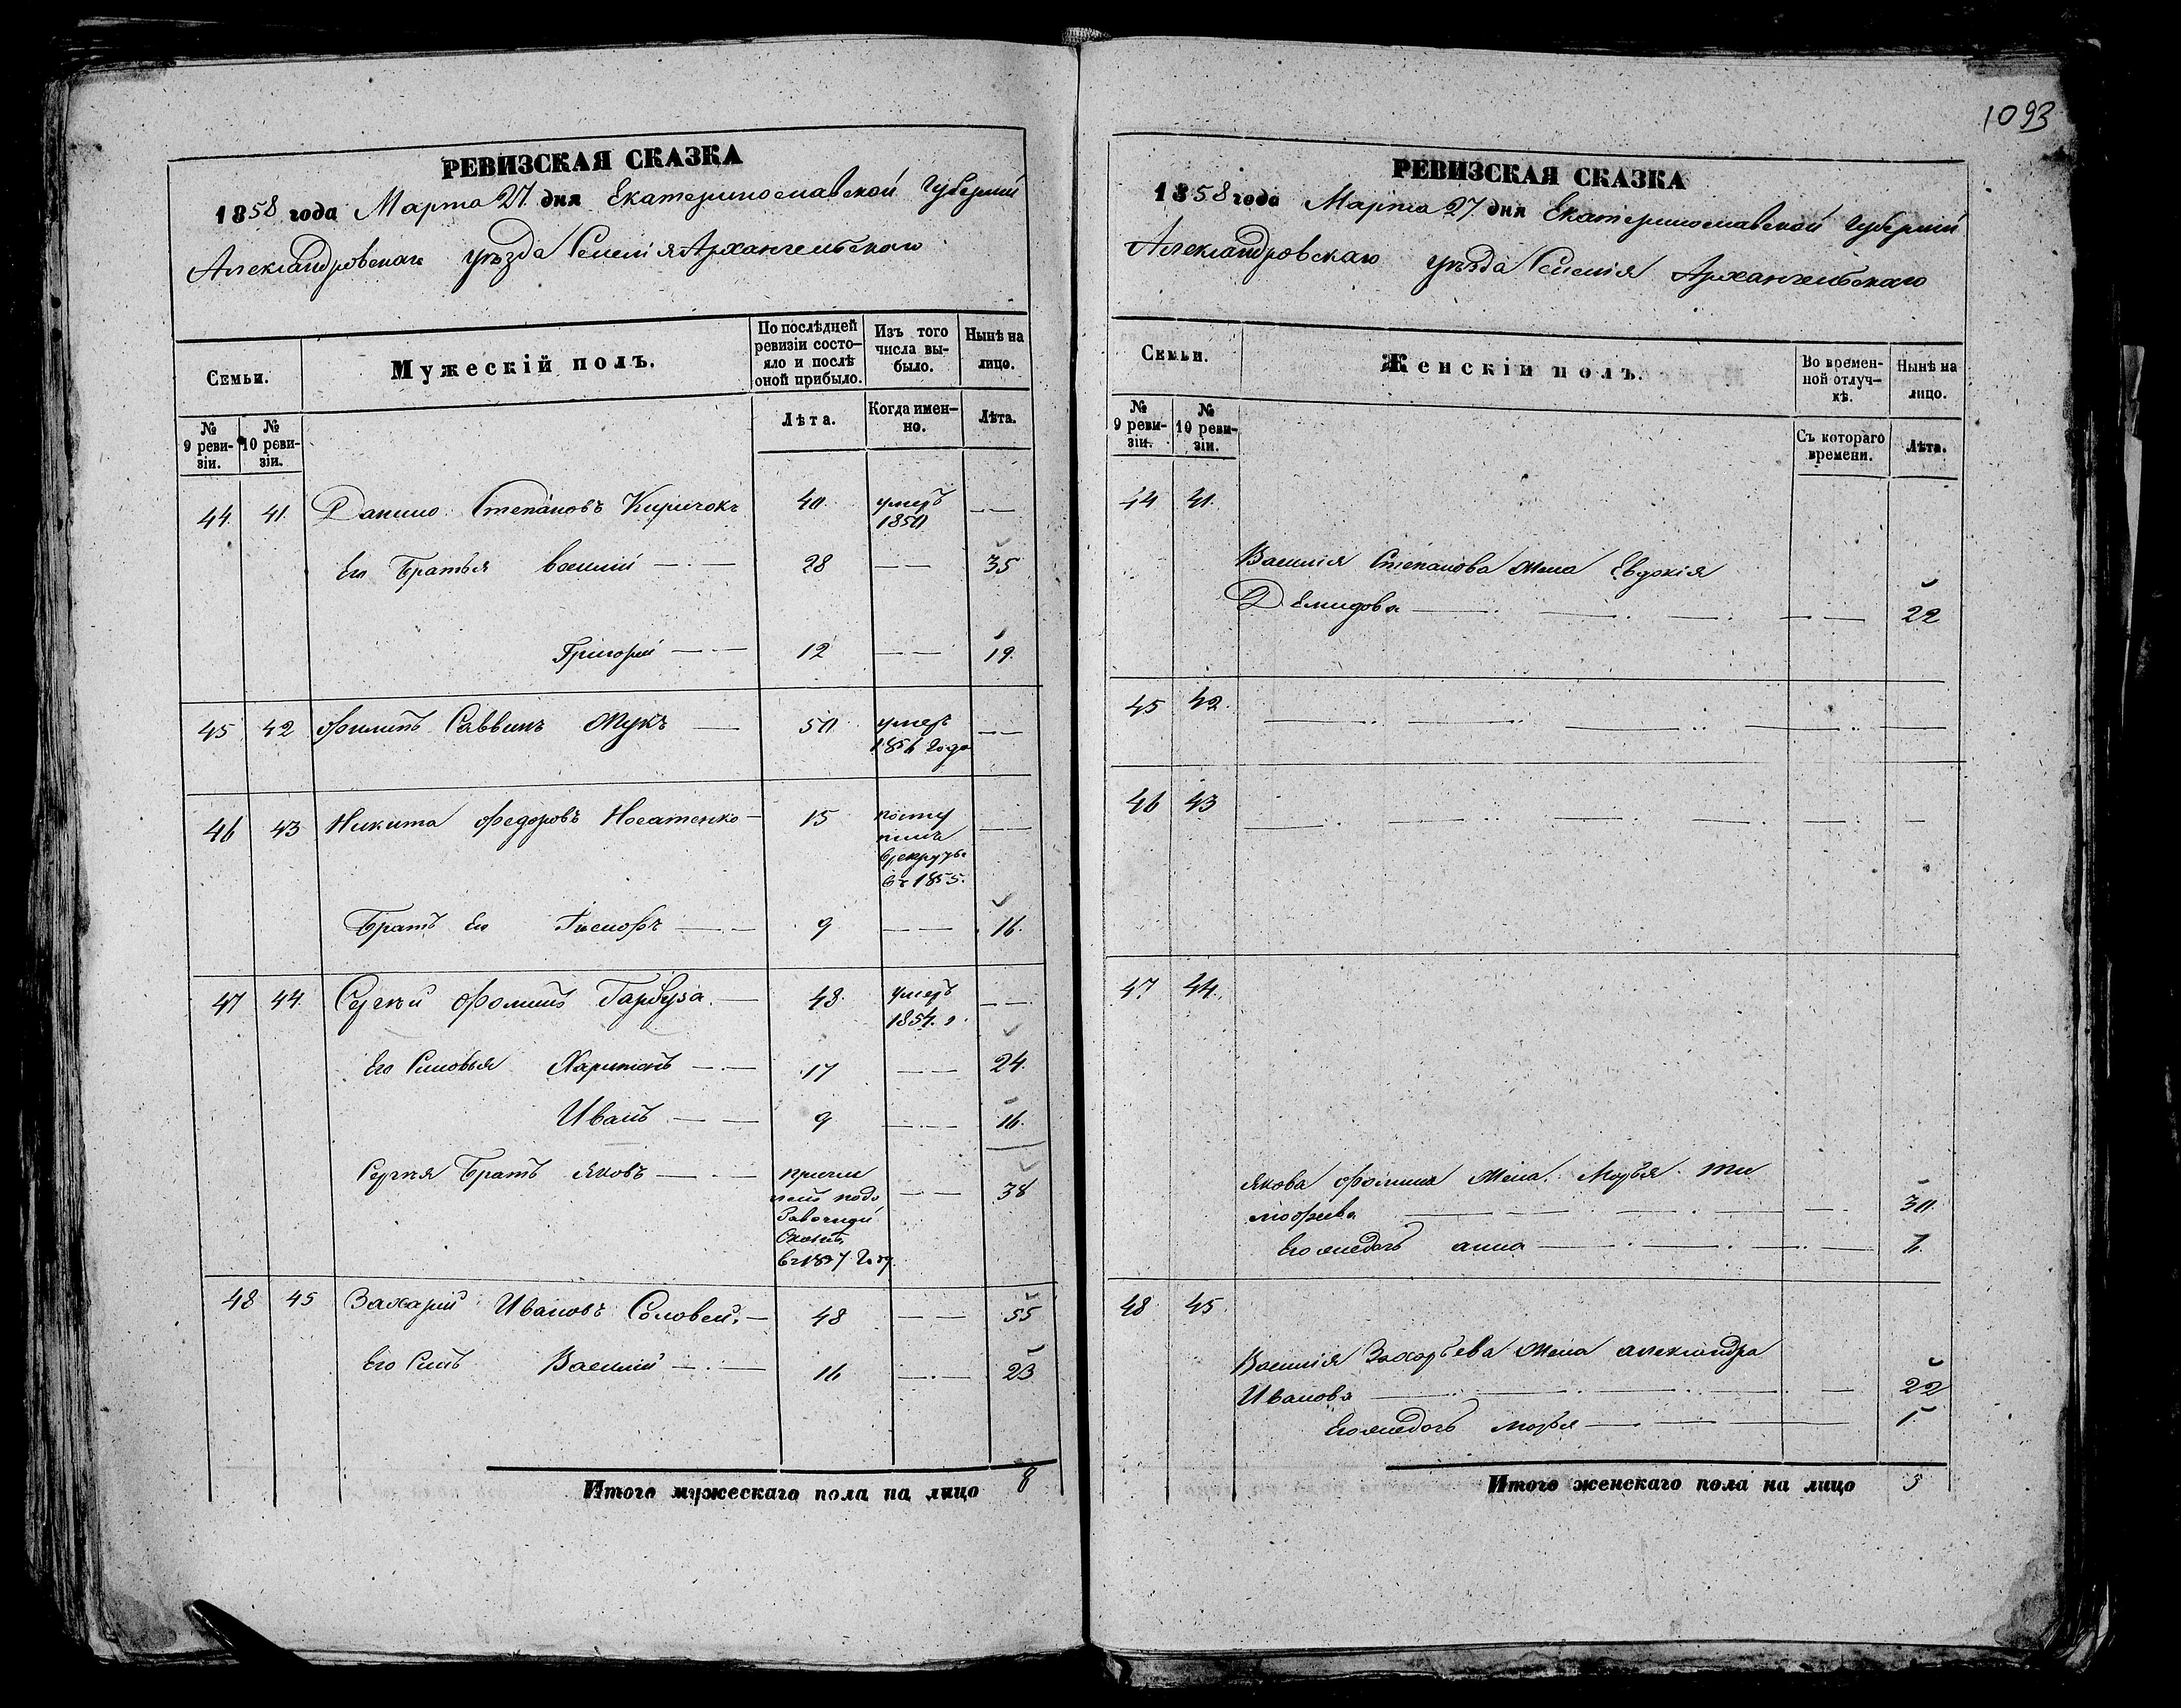 1093
РЕВИЗСКАЯ СКАЗКА
1858 года Марта 27 дня Екатеринославской Губерніи
Александровскаго уѣзда Селенія Архангельскаго
Семьи. Мужескій полъ. По послѣдней ревизіи состо- яло и послѣ оной прибыло. Изъ того числа вы- было. Нынѣ на лицо.
№ 9 реви- зіи. № 10 реви- зіи. Лѣта. Когда имен- но. Лѣта.
44 41 Данило Степановъ Киричокъ 40 умеръ 1850
Его Братья Василій 28 35
Григорій 12 19
45 42 Филипъ Саввинъ Жукъ 50 умеръ 1856 года
46 43 Никита Федоровъ Носатенко 15 посту
пилъ
въ 1855.
Братъ Его 9 16
47 44 Сергѣй Фоминъ Гарбуза 48 умеръ 1854. г.
Его Сыновья Харитонъ 17 24
Иванъ 9 16
Сергѣя Братъ Яковъ 38
въ 1857 году
48 45 Захарій Ивановъ Соловей 48 55
Его Сынъ Василій 16 23
Итого мужескаго пола на лицо 8
РЕВИЗСКАЯ СКАЗКА
1858 года Марта 27 дня Екатеринославской Губерніи
Александровскаго уѣзда Селенія Архангельскаго
Семьи. Женскій полъ. Во времен- ной отлуч- кѣ. Нынѣ на лицо.
№ 9 реви- зіи. № 10 реви- зіи. Съ котораго времени. Лѣта.
44 41
Василія Степанова жена Евдокія
Демидова 22
45 42
46 43
47 44
Якова Фомина жена Марья Ти
мофеева 30
Его жедочь анна 1
48 45
Василія Захарьева жена александра
Иванова 22
Его жедочь марья 1
Итого женскаго пола на лицо 5